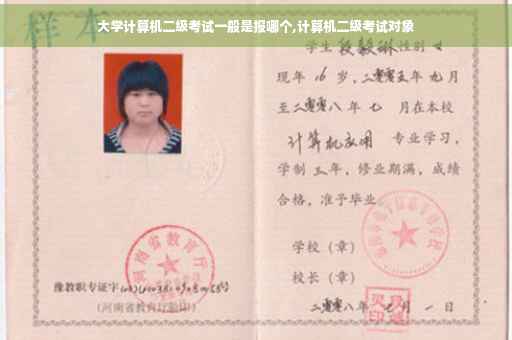 大学计算机二级考试一般是报哪个,计算机二级考试对象
样本
学生 段毅琳 性别 女
现年 16 岁，二零零五年 九月
至二零零八年 七 月在本校
计算机应用 专业学习，
学制 三年，修业期满，成绩
合格，准予毕业
河南省教育厅
学校（章）
校长（章）
豫教职专证字
（河南省教育厅验印）
二零零八年 月 一 日